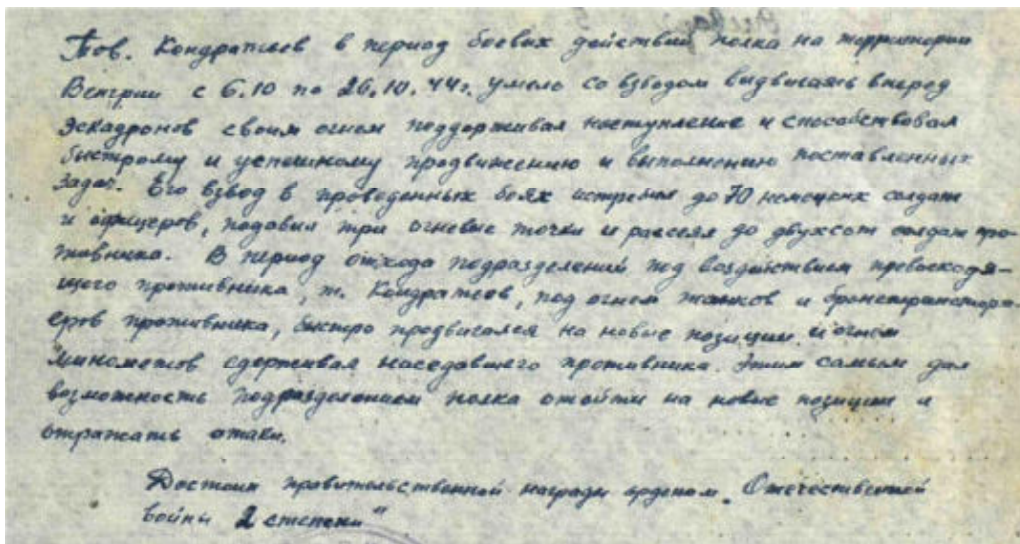 Тов. Кондратьев в период боевых действий полка на территории
Венгрии с 6.10 по 26.10.44г. умело со взводом видвигаясь вперед
эскадронов своим огнем поддерживал наступление и способствовал
быстрому и успешному продвижению и выполнению поставленных
задач. Его взвод в проведенных боях истребил до 70 немецких солдат
и офицеров, подавил три огневые точки и рассеял до двухсот солдат про-
тивника. В период отхода подразделений под воздействием превосходя-
щего противника, т. Кондратьев, под огнем танков и бронетранспорт-
еров противника, быстро продвигался на новые позиции и огнем
минометов сдерживая наседавшего противника. Этим самым дал
возможность подразделениям полка отойти на новые позиции и
отражать атаки.
Достоин правительственной награды орденом „Отечественной
войны 2 степени"